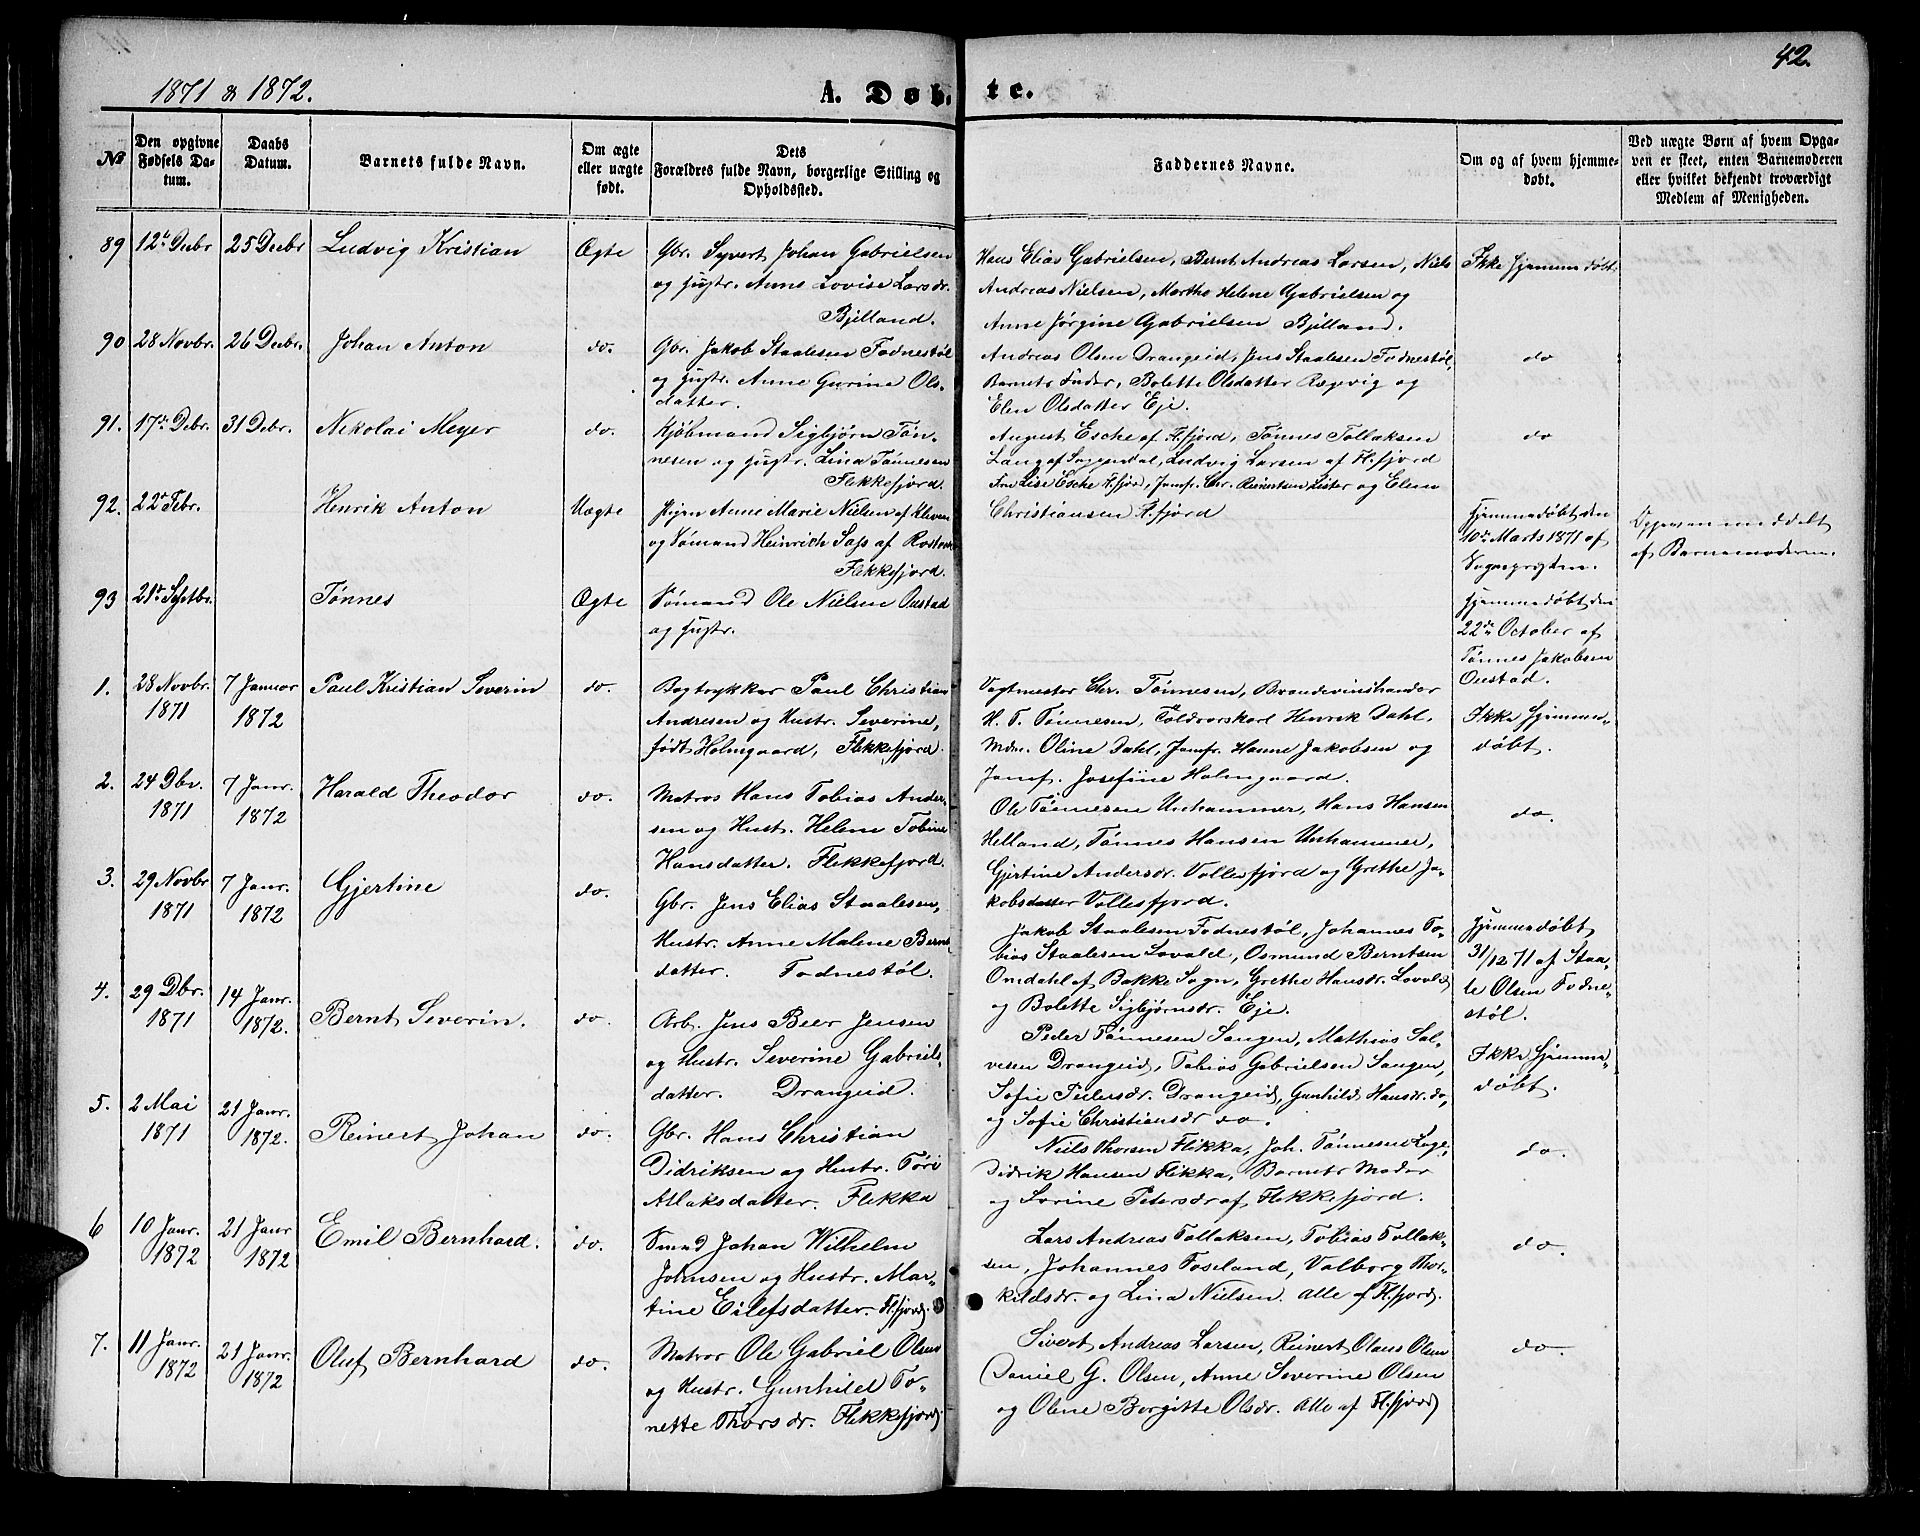 42.
1871 & 1872.
A. Døb-
te.
No
Den opgivne Fødsels Datum.
Daabs Datum.
Barnets fulde Navn.
Om ægte eller uægte født.
Dets Forældres fulde Navn, borgerlige Stilling og Opholdssted.
Faddernes Navne.
Om og af hvem hjemmedøbt.
Ved uægte Børn af hvem Opgaven er skeet, enten Barnemoderen eller hvilket bekjendt troværdigt Medlem af Menigheden.
89 12te Decbr 25 Decbr Ludvig Kristian Ægte
Gbr. Syvert Johan Gabrielsen
og Hustr. Anne Lovise Larsdr.
Bjelland.
Hans Elias Gabrielsen, Bernt Andreas Larsen, Niels
Andreas Nielsen, Marthe Helene Gabrielsen og
Anne Jørgine Gabrielsen Bjelland.
Ikke hjemmedøbt
90 28 Novbr. 26 Decbr. Johan Anton do.
Gbr. Jakob Staalesen Fodnestøl
og Hustr. Anne Gurine Ols-
datter.
Andreas Olsen Drangeid, Jens Staalesen Fodnestøl,
Barnets Fader, Bolette Olsdatter RæGevig og
Elen Olsdatter Eje.
do
91. 17de Debr. 31 Debr. Nikolai Meyer do.
Kjøbmand Sigbjørn Tøn-
nesen og Hustr. Lina Tønnesen
Flekkefjord.
August Esche af F.fjord, Tønnes Tollaksen
Lang af Sogendal, Ludvig Larsen af Fl.fjord
Fru Lise Esche F.fjord, Jomfr. Chr. Reinertsen Lister og Elen
Christiansen F.fjord
do
92. 22de Febr. Henrik Anton Uægte
Pigen Anne Marie Nielsen af Kleven
og Sømand Heinrich Sass af Rostock
Flekkefjord.
Hjemmedøbt den
10de Marts 1871 af
Sognepresten.
Opgaven meddelt
af Barnemoderen.
93 21de Septbr. Tønnes Ægte
Sømand Ole Nielsen Oustad
og Hustr.
Hjemmedøbt den
22de October af
Tønnes Jakobsen
Oustad.
1. 28 Novbr. 1871 7 Januar 1872 Paul Kristian Severin do.
Bogtrykker Paul Christian
Andresen og Hustr. Severine,
født Holmgaard, Flekkefjord.
Vagtmester Chr. Tønnesen, Brændevinshandler
H. T. Tønnesen, Toldvorskarl Henrik Dahl,
Mdm. Oline Dahl, Jomfr. Hanne Jakobsen og
Jomf. Josefine Holmgaard.
Ikke hjemme-
døbt.
2. 24 Dbr. 1871 7 Janr. 1872 Harald Theodor do.
Matros Hans Tobias Ander-
sen og Hust. Helene Tobine
Hansdatter. Flekkefjord.
Ole Tønnesen Unhammer, Hans Hansen
Helland, Tønnes Hansen Unhammer,
Gjertine Andersdr. Vollesfjord og Grethe Ja-
kobsdatter Vollesfjord.
do.
3. 29 Novbr 1871 7 Janr. 1872 Gjertine do.
Gbr. Jens Elias Staalesen,
Hustr. Anne Malene Bernt-
datter. Fodnestøl.
Jakob Staalesen Fodnestøl, Johannes To-
bias Staalesen Lovald, Osmund Berntsen
Omdahl af Bakke Sogn, Grethe Hansdr. Lovald
og Bolette Sigbjørnsdr. Eje.
Hjemmedøbt
31/12 71 af Staa-
le Olsen Fodne-
støl.
4. 29 Dbr. 1871 14 Janr. 1872. Bernt Severin. do.
Arb. Jens Beer Jensen
og Hustr. Severine Gabriels-
datter. Drangeid.
Peder Tønnesen Sangen, Mathias Sal-
vesen Drangeid, Tobias Gabrielsen Sangen,
Sofie Pedersdr. Drangeid, Gunhild Hansdr. do,
og Sofie Christiansdr do.
Ikke hjemme-
døbt.
5. 2 Mai 1871 21 Janr. 1872. Reinert Johan do.
Gbr. Hans Christian
Didriksen og Hustr. Tøri
Atlaksdatter. Flikka
Niels Thorsen Flikka, Joh. Tønnesen Loge,
Didrik Hansen Flikka, Barnets Moder
og Sorine Petersdr af Flekkefjord.
do.
6 10 Janr. 1872 21 Janr 1872 Emil Bernhard. do.
Smed Johan Wilhelm
Johnsen og Hustr. Mar-
tine Eilefsdatter. Fl.fjord.
Lars Andreas Tollaksen, Tobias Tollak-
sen, Johannes Foseland, Valborg Thor-
kildsdr. og Lina Nielsen. Alle af Fl.fjord.
do.
7. 11 Janr. 1872 21 Janr. 1872 Oluf Bernhard do.
Matros Ole Gabriel Olsen
og Hustr. Gunhild To-
nette Thorsdr. Flekkefjord.
Sivert Andreas Larsen, Reinert Olaus Olsen
Daniel G. Olsen, Anne Severine Olsen
og Olene Borgitte Olsdr. Alle af Fl.fjord
do.